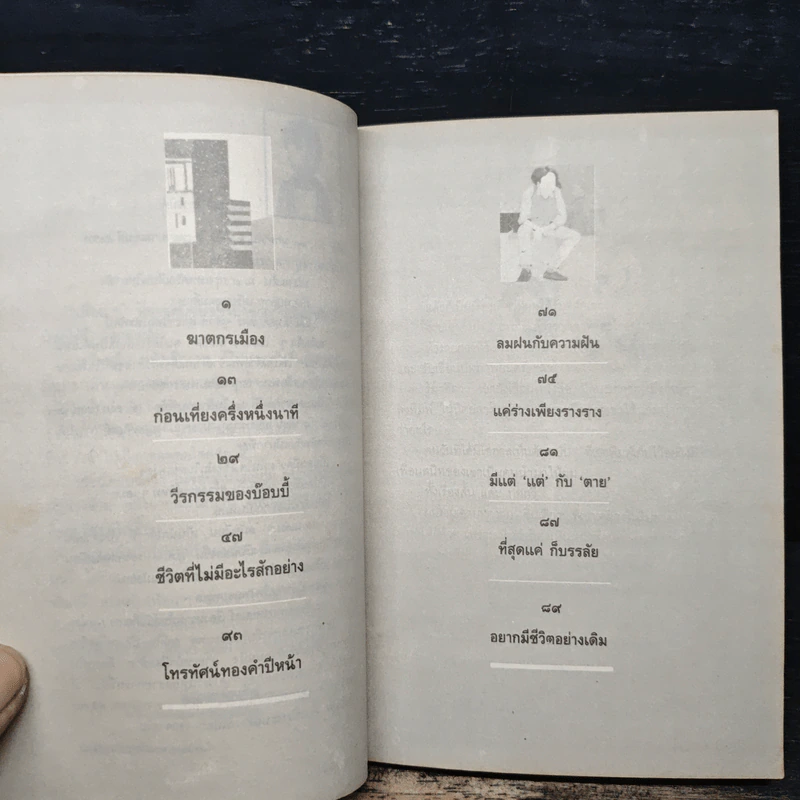 ๑
ฆาตกรเมือง
๑๓
ก่อนเที่ยงครึ่งหนึ่งนาที
๒๙
วีรกรรมของบ๊อบบี้
๔๗
ชีวิตที่ไม่มีอะไรสักอย่าง
๙๓
โทรทัศน์ทองคำปีหน้า
๗๑
ลมฝนกับความฝัน
๗๕
แค่ร่างเพียงรางราง
๘๑
มีแต่ 'แต่' กับ 'ตาย'
๘๗
ที่สุดแค่ ก็บรรลัย
๘๙
อยากมีชีวิตอย่างเดิม